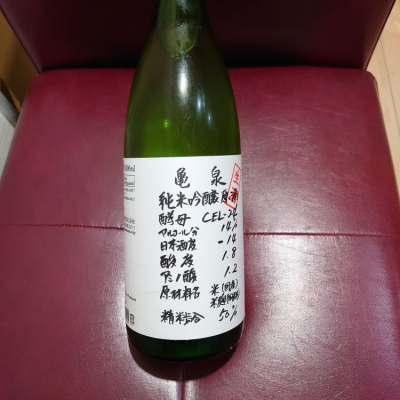 亀泉
純米吟醸原酒
酵母 CEL-24
アルコール分 14%
日本酒度 -14
酸度 1.8
アミノ酸 1.2
原材料名 米(国産)
米麹(国産米)
精米歩合 50%